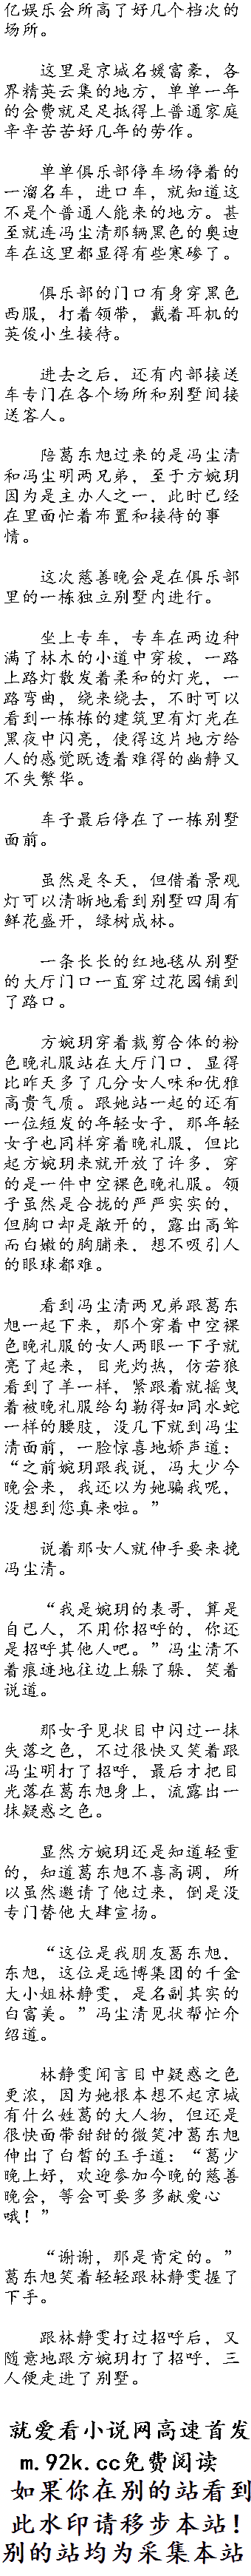 亿娱乐会所高了好几个档次的
场所。
这里是京城名媛富豪，各
界精英云集的地方，单单一年
的会费就足足抵得上普通家庭
辛辛苦苦好几年的劳作。
单单俱乐部停车场停着的
一溜名车，进口车，就知道这
不是个普通人能来的地方。甚
至就连冯尘清那辆黑色的奥迪
车在这里都显得有些寒碜了。
俱乐部的门口有身穿黑色
西服，打着领带，戴着耳机的
英俊小生接待。
进去之后，还有内部接送
车专门在各个场所和别墅间接
送客人。
陪葛东旭过来的是冯尘清
和冯尘明两兄弟，至于方婉玥
因为是主办人之一，此时已经
在里面忙着布置和接待的事
情。
这次慈善晚会是在俱乐部
里的一栋独立别墅内进行。
坐上专车，专车在两边种
满了林木的小道中穿梭，一路
上路灯散发着柔和的灯光，一
路弯曲，绕来绕去，不时可以
看到一栋栋的建筑里有灯光在
黑夜中闪亮，使得这片地方给
人的感觉既透着难得的幽静又
不失繁华。
车子最后停在了一栋别墅
面前。
虽然是冬天，但借着景观
灯可以清晰地看到别墅四周有
鲜花盛开，绿树成林。
一条长长的红地毯从别墅
的大厅门口一直穿过花园铺到
了路口。
方婉玥穿着裁剪合体的粉
色晚礼服站在大厅门口，显得
比昨天多了几分女人味和优雅
高贵气质。跟她站一起的还有
一位短发的年轻女子，那年轻
女子也同样穿着晚礼服，但比
起方婉玥来就开放了许多，穿
的是一件中空裸色晚礼服。领
子虽然是合拢的严严实实的，
但胸口却是敞开的，露出高耸
而白嫩的胸脯来，想不吸引人
的眼球都难。
看到冯尘清两兄弟跟葛东
旭一起下来，那个穿着中空裸
色晚礼服的女人两眼一下子就
亮了起来，目光灼热，仿若狼
看到了羊一样，紧跟着就摇曳
着被晚礼服给勾勒得如同水蛇
一样的腰肢，没几下就到冯尘
清面前，一脸惊喜地娇声道：
“之前婉玥跟我说，冯大少今
晚会来，我还以为她骗我呢，
没想到您真来啦。”
说着那女人就伸手要来挽
冯尘清。
“我是婉玥的表哥，算是
自己人，不用你招呼的，你还
是招呼其他人吧。”冯尘清不
着痕迹地往边上躲了躲，笑着
说道。
那女子见状目中闪过一抹
失落之色，不过很快又笑着跟
冯尘明打了招呼，最后才把目
光落在葛东旭身上，流露出一
抹疑惑之色。
显然方婉玥还是知道轻重
的，知道葛东旭不喜高调，所
以虽然邀请了他过来，倒是没
专门替他大肆宣扬。
“这位是我朋友葛东旭，
东旭，这位是远博集团的千金
大小姐林静雯，是名副其实的
白富美。”冯尘清见状帮忙介
绍道。
林静雯闻言目中疑惑之色
更浓，因为她根本想不起京城
有什么姓葛的大人物，但还是
很快面带甜甜的微笑冲葛东旭
伸出了白皙的玉手道：“葛少
晚上好，欢迎参加今晚的慈善
晚会，等会可要多多献爱心
哦！”
“谢谢，那是肯定的。”
葛东旭笑着轻轻跟林静雯握了
下手。
跟林静雯打过招呼后，又
随意地跟方婉玥打了招呼，三
人便走进了别墅。
就爱看小说网高速首发
m.92k.cc免费阅读
如果你在别的站看到
此水印请移步本站！
别的站均为采集本站